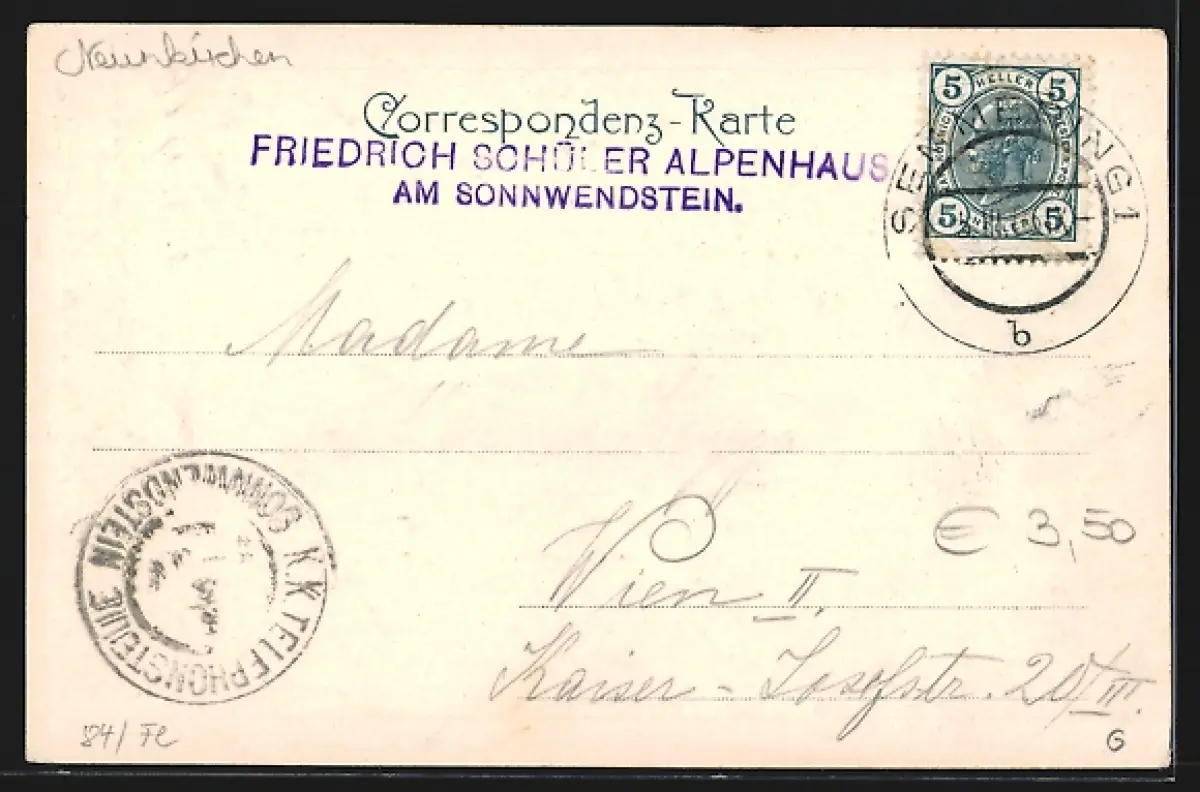 Neunkirchen
Correspondenz-Karte
FRIEDRICH SCHÜLER ALPENHAUS
AM SONNWENDSTEIN.
5 HELLER 5
5 HELLER 5
SEMMERING 1
b
Madame
K.K. TELEPHONSTELLE
SONNWENDSTEIN
€ 3,50
Wien II.
Kaiser-Josefstr. 20/III.
84/Fe
G